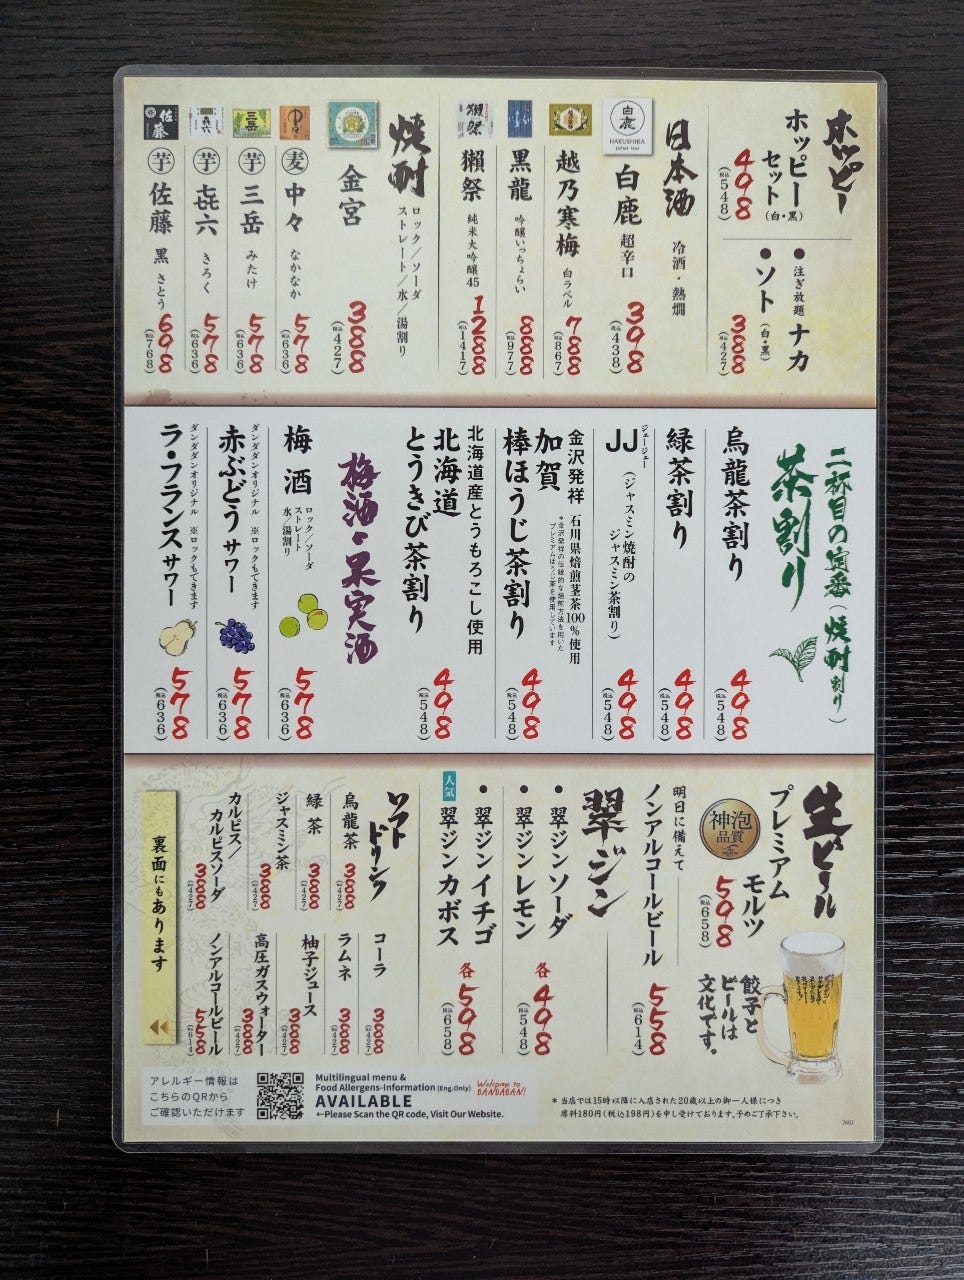 ホッピー
ホッピー
セット(白・黒)
498
(税込548)
●注ぎ放題 ナカ
●ソト(白・黒)
388
(税込427)
日本酒
冷酒・熱燗
白鹿
HAKUSHIKA
白鹿 超辛口
398
(税込438)
越乃寒梅 白ラベル
788
(税込867)
黒龍 吟醸いっちょらい
888
(税込977)
獺祭
獺祭 純米大吟醸45
1288
(税込1417)
焼酎
ロック/ソーダ
ストレート/水/湯割り
金宮
388
(税込427)
中々
麦 中々 なかなか
578
(税込636)
三岳
芋 三岳 みたけ
578
(税込636)
㐂六
芋 㐂六 きろく
578
(税込636)
佐藤
芋 佐藤 黒 さとう
698
(税込768)
二杯目の定番(焼酎割り)
茶割り
烏龍茶割り
498
(税込548)
緑茶割り
498
(税込548)
ジェージェー
JJ(ジャスミン焼酎の
ジャスミン茶割り)
498
(税込548)
金沢発祥 石川県焙煎茎茶100%使用
加賀
棒ほうじ茶割り
498
(税込548)
北海道産とうもろこし使用
北海道
とうきび茶割り
498
(税込548)
梅酒・果実酒
梅酒
ロック/ソーダ
ストレート
水/湯割り
578
(税込636)
ダンダダンオリジナル ※ロックもできます
赤ぶどうサワー
578
(税込636)
ダンダダンオリジナル ※ロックもできます
ラ・フランスサワー
578
(税込636)
生ビール
プレミアム
モルツ
神泡
品質
598
(税込658)
餃子と
ビールは
文化です。
明日に備えて
ノンアルコールビール
558
(税込614)
翠ジン
●翠ジンソーダ
●翠ジンレモン
各498
(税込548)
●翠ジンイチゴ
人気
翠ジンカボス
各598
(税込658)
ソフトドリンク
烏龍茶
388
(税込427)
緑茶
388
(税込427)
ジャスミン茶
388
(税込427)
カルピス/
カルピスソーダ
388
(税込427)
コーラ
388
(税込427)
ラムネ
388
(税込427)
柚子ジュース
388
(税込427)
高圧ガスウォーター
388
(税込427)
ノンアルコールビール
558
(税込614)
裏面にもあります
アレルギー情報は
こちらのQRから
ご確認いただけます
Multilingual menu &
Food Allergens-Information (Eng.Only)
AVAILABLE
←Please Scan the QR code, Visit Our Website.
Welcome to
DANDADAN!
*当店では15時以降に入店された20歳以上の御一人様につき
席料180円(税込198円)を申し受けております。予めご了承下さい。
2602